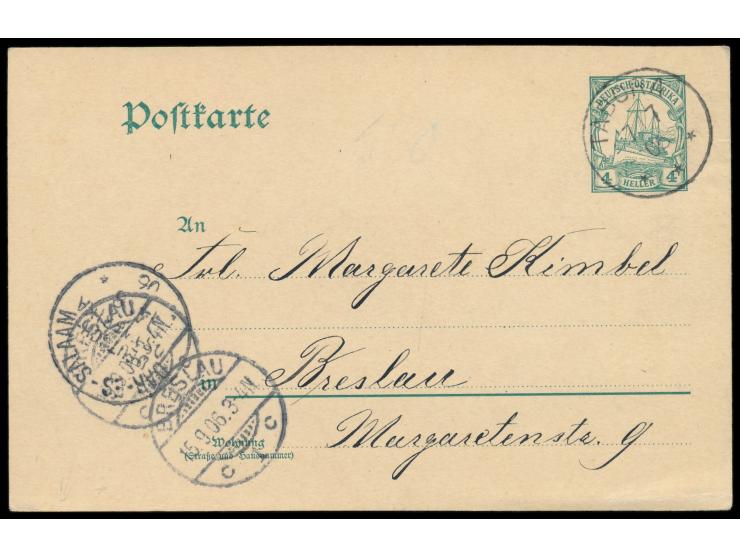 Postkarte
DEUTSCH-OSTAFRIKA
4 HELLER 4
TABORA
An
Frl. Margarete Kimbel
in Breslau
Margaretenstr. 9
Wohnung
(Straße und Hausnummer)
DAR-ES-SALAAM
BRESLAU
15.9.06.3-4N
C C